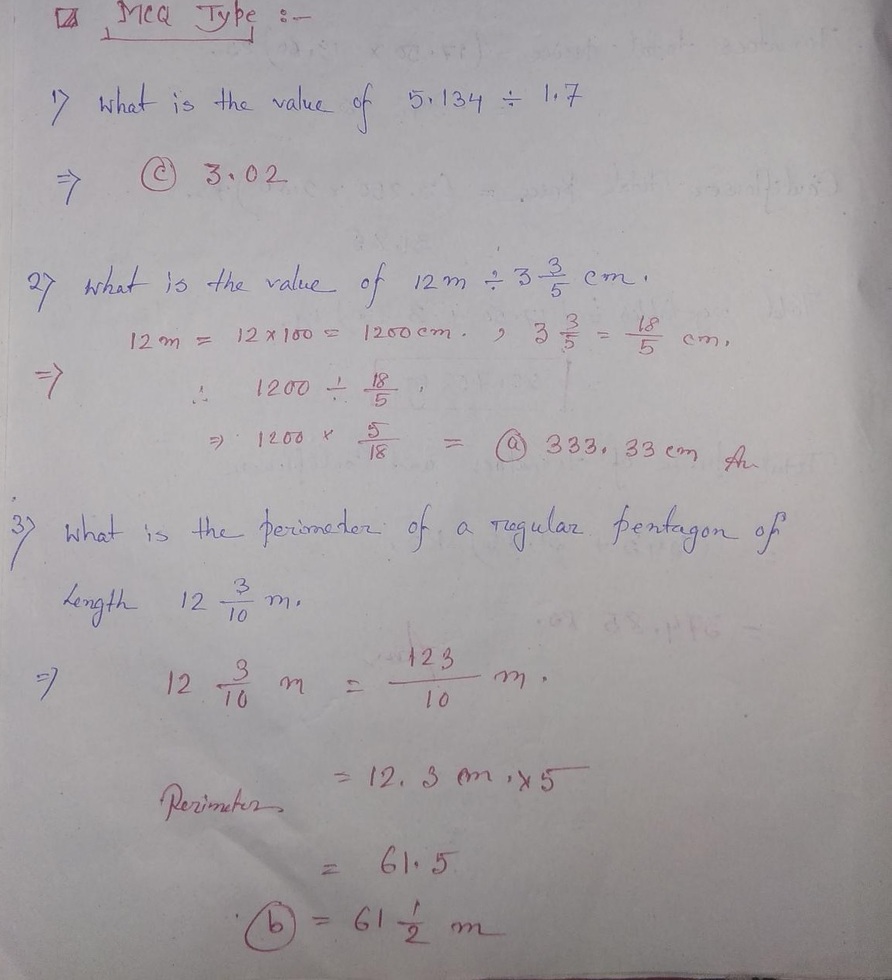 MCQ Type :-
1) What is the value of 5.134 ÷ 1.7
⇒ (c) 3.02
2) What is the value of 12m ÷ 3 3/5 cm.
12m = 12×100 = 1200cm. , 3 3/5 = 18/5 cm.
⇒ ∴ 1200 ÷ 18/5
⇒ 1200 × 5/18 = (a) 333.33 cm An
3) What is the perimeter of a regular pentagon of
Length 12 3/10 m.
⇒ 12 3/10 m = 123/10 m.
= 12.3 m × 5
Perimeter
= 61.5
(b) = 61 1/2 m